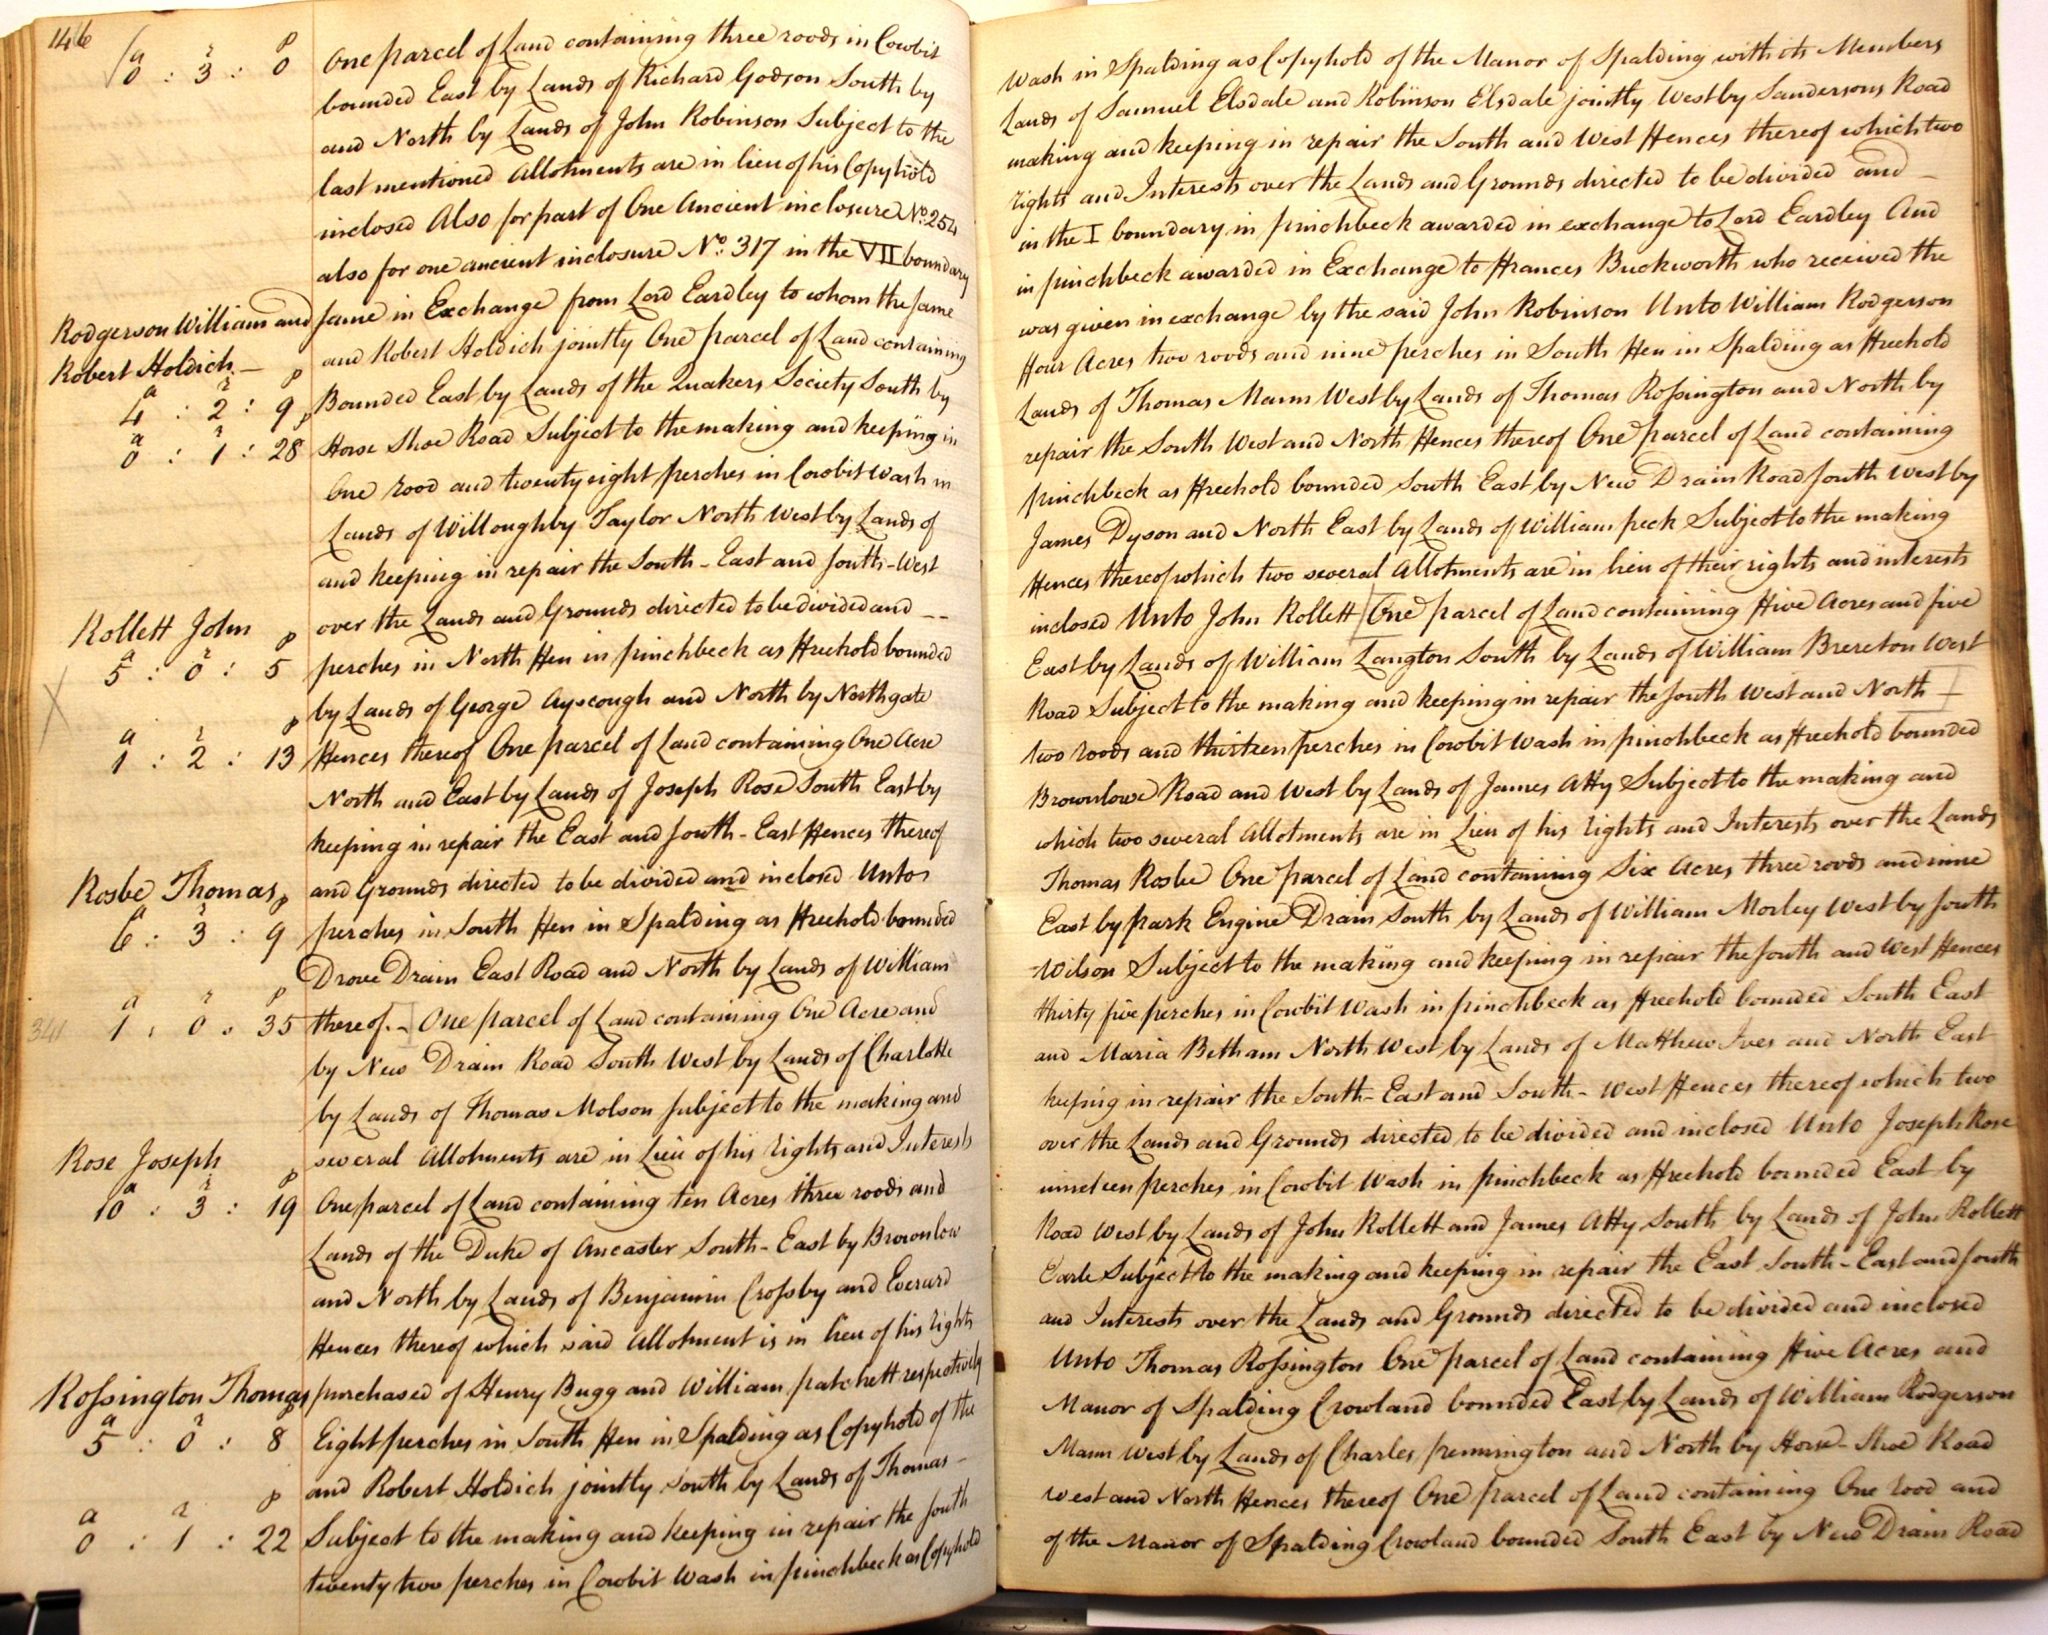 146
a r p
0 : 3 : 0
One parcel of Land containing three roods in Cowbit
Wash in Spalding as Copyhold of the Manor of Spalding with its Members
bounded East by Lands of Richard Godson South by
Lands of Samuel Elsdale and Robinson Elsdale jointly West by Sandersons Road
and North by Lands of John Robinson Subject to the
making and keeping in repair the South and West Fences thereof which two
last mentioned Allotments are in lieu of his Copyhold
rights and Interests over the Lands and Grounds directed to be divided and
inclosed Also for part of One Ancient inclosure No. 254
in the I boundary in pinchbeck awarded in exchange to Lord Eardley And
also for one ancient inclosure No. 317 in the VII boundary
in pinchbeck awarded in Exchange to Frances Buckworth who received the
Rodgerson William and
same in Exchange from Lord Eardley to whom the same
was given in exchange by the said John Robinson Unto William Rodgerson
Robert Holdich
and Robert Holdich jointly One parcel of Land containing
Four Acres two roods and nine perches in South Fen in Spalding as Freehold
a r p
4 : 2 : 9
Bounded East by Lands of the Quakers Society South by
Lands of Thomas Mann West by Lands of Thomas Roſsington and North by
a r p
0 : 1 : 28
Horse Shoe Road Subject to the making and keeping in
repair the South West and North Fences thereof One parcel of Land containing
One rood and twenty eight perches in Cowbit Wash in
pinchbeck as Freehold bounded South East by New Drain Road South West by
Lands of Willoughby Taylor North West by Lands of
James Dyson and North East by Lands of William peck Subject to the making
and keeping in repair the South - East and South - West
Fences thereof which two several Allotments are in lieu of their rights and interests
over the Lands and Grounds directed to be divided and
inclosed Unto John Rollett [One parcel of Land containing Five Acres and five
Rollett John
a r p
5 : 0 : 5
perches in North Fen in pinchbeck as Freehold bounded
East by Lands of William Langton South by Lands of William Brereton West
by Lands of George Ayscough and North by Northgate
Road Subject to the making and keeping in repair the South West and North
a r p
1 : 2 : 13
Fences thereof One parcel of Land containing One Acre
two roods and thirteen perches in Cowbit Wash in pinchbeck as Freehold bounded
North and East by Lands of Joseph Rose South East by
Brownlowe Road and West by Lands of James Atty Subject to the making and
keeping in repair the East and South - East Fences thereof
which two several Allotments are in Lieu of his rights and Interests over the Lands
Rosbe Thomas
and Grounds directed to be divided and inclosed Unto
Thomas Rosbe One parcel of Land containing Six Acres three roods and nine
a r p
6 : 3 : 9
perches in South Fen in Spalding as Freehold bounded
East by park Engine Drain South by Lands of William Morley West by South
Drove Drain East Road and North by Lands of William
Wilson Subject to the making and keeping in repair the South and West Fences
341
a r p
1 : 0 : 35
thereof - [One parcel of Land containing One Acre and
thirty five perches in Cowbit Wash in pinchbeck as Freehold bounded South East
by New Drain Road South West by Lands of Charlotte
and Maria Betham North West by Lands of Matthew Ives and North East
by Lands of Thomas Molson subject to the making and
keeping in repair the South - East and South - West Fences thereof which two
several Allotments are in Lieu of his rights and Interests
over the Lands and Grounds directed to be divided and inclosed Unto Joseph Rose
Rose Joseph
a r p
10 : 3 : 19
One parcel of Land containing ten Acres three roods and
nineteen perches in Cowbit Wash in pinchbeck as Freehold bounded East by
Lands of the Duke of Ancaster South - East by Brownlow
Road West by Lands of John Rollett and James Atty South by Lands of John Rollett
and North by Lands of Benjamin Croſsby and Everard
Earle Subject to the making and keeping in repair the East South - East and South
Fences thereof which said Allotment is in lieu of his rights
and Interests over the Lands and Grounds directed to be divided and inclosed
Roſsington Thomas
purchased of Henry Bugg and William patchett respectively
Unto Thomas Roſsington One parcel of Land containing Five Acres and
a r p
5 : 0 : 8
Eight perches in South Fen in Spalding as Copyhold of the
Manor of Spalding Crowland bounded East by Lands of William Rodgerson
and Robert Holdich jointly South by Lands of Thomas
Mann West by Lands of Charles pennington and North by Horse - Shoe Road
a r p
0 : 1 : 22
Subject to the making and keeping in repair the South
West and North Fences thereof One parcel of Land containing One rood and
twenty two perches in Cowbit Wash in pinchbeck as Copyhold
of the Manor of Spalding Crowland bounded South East by New Drain Road